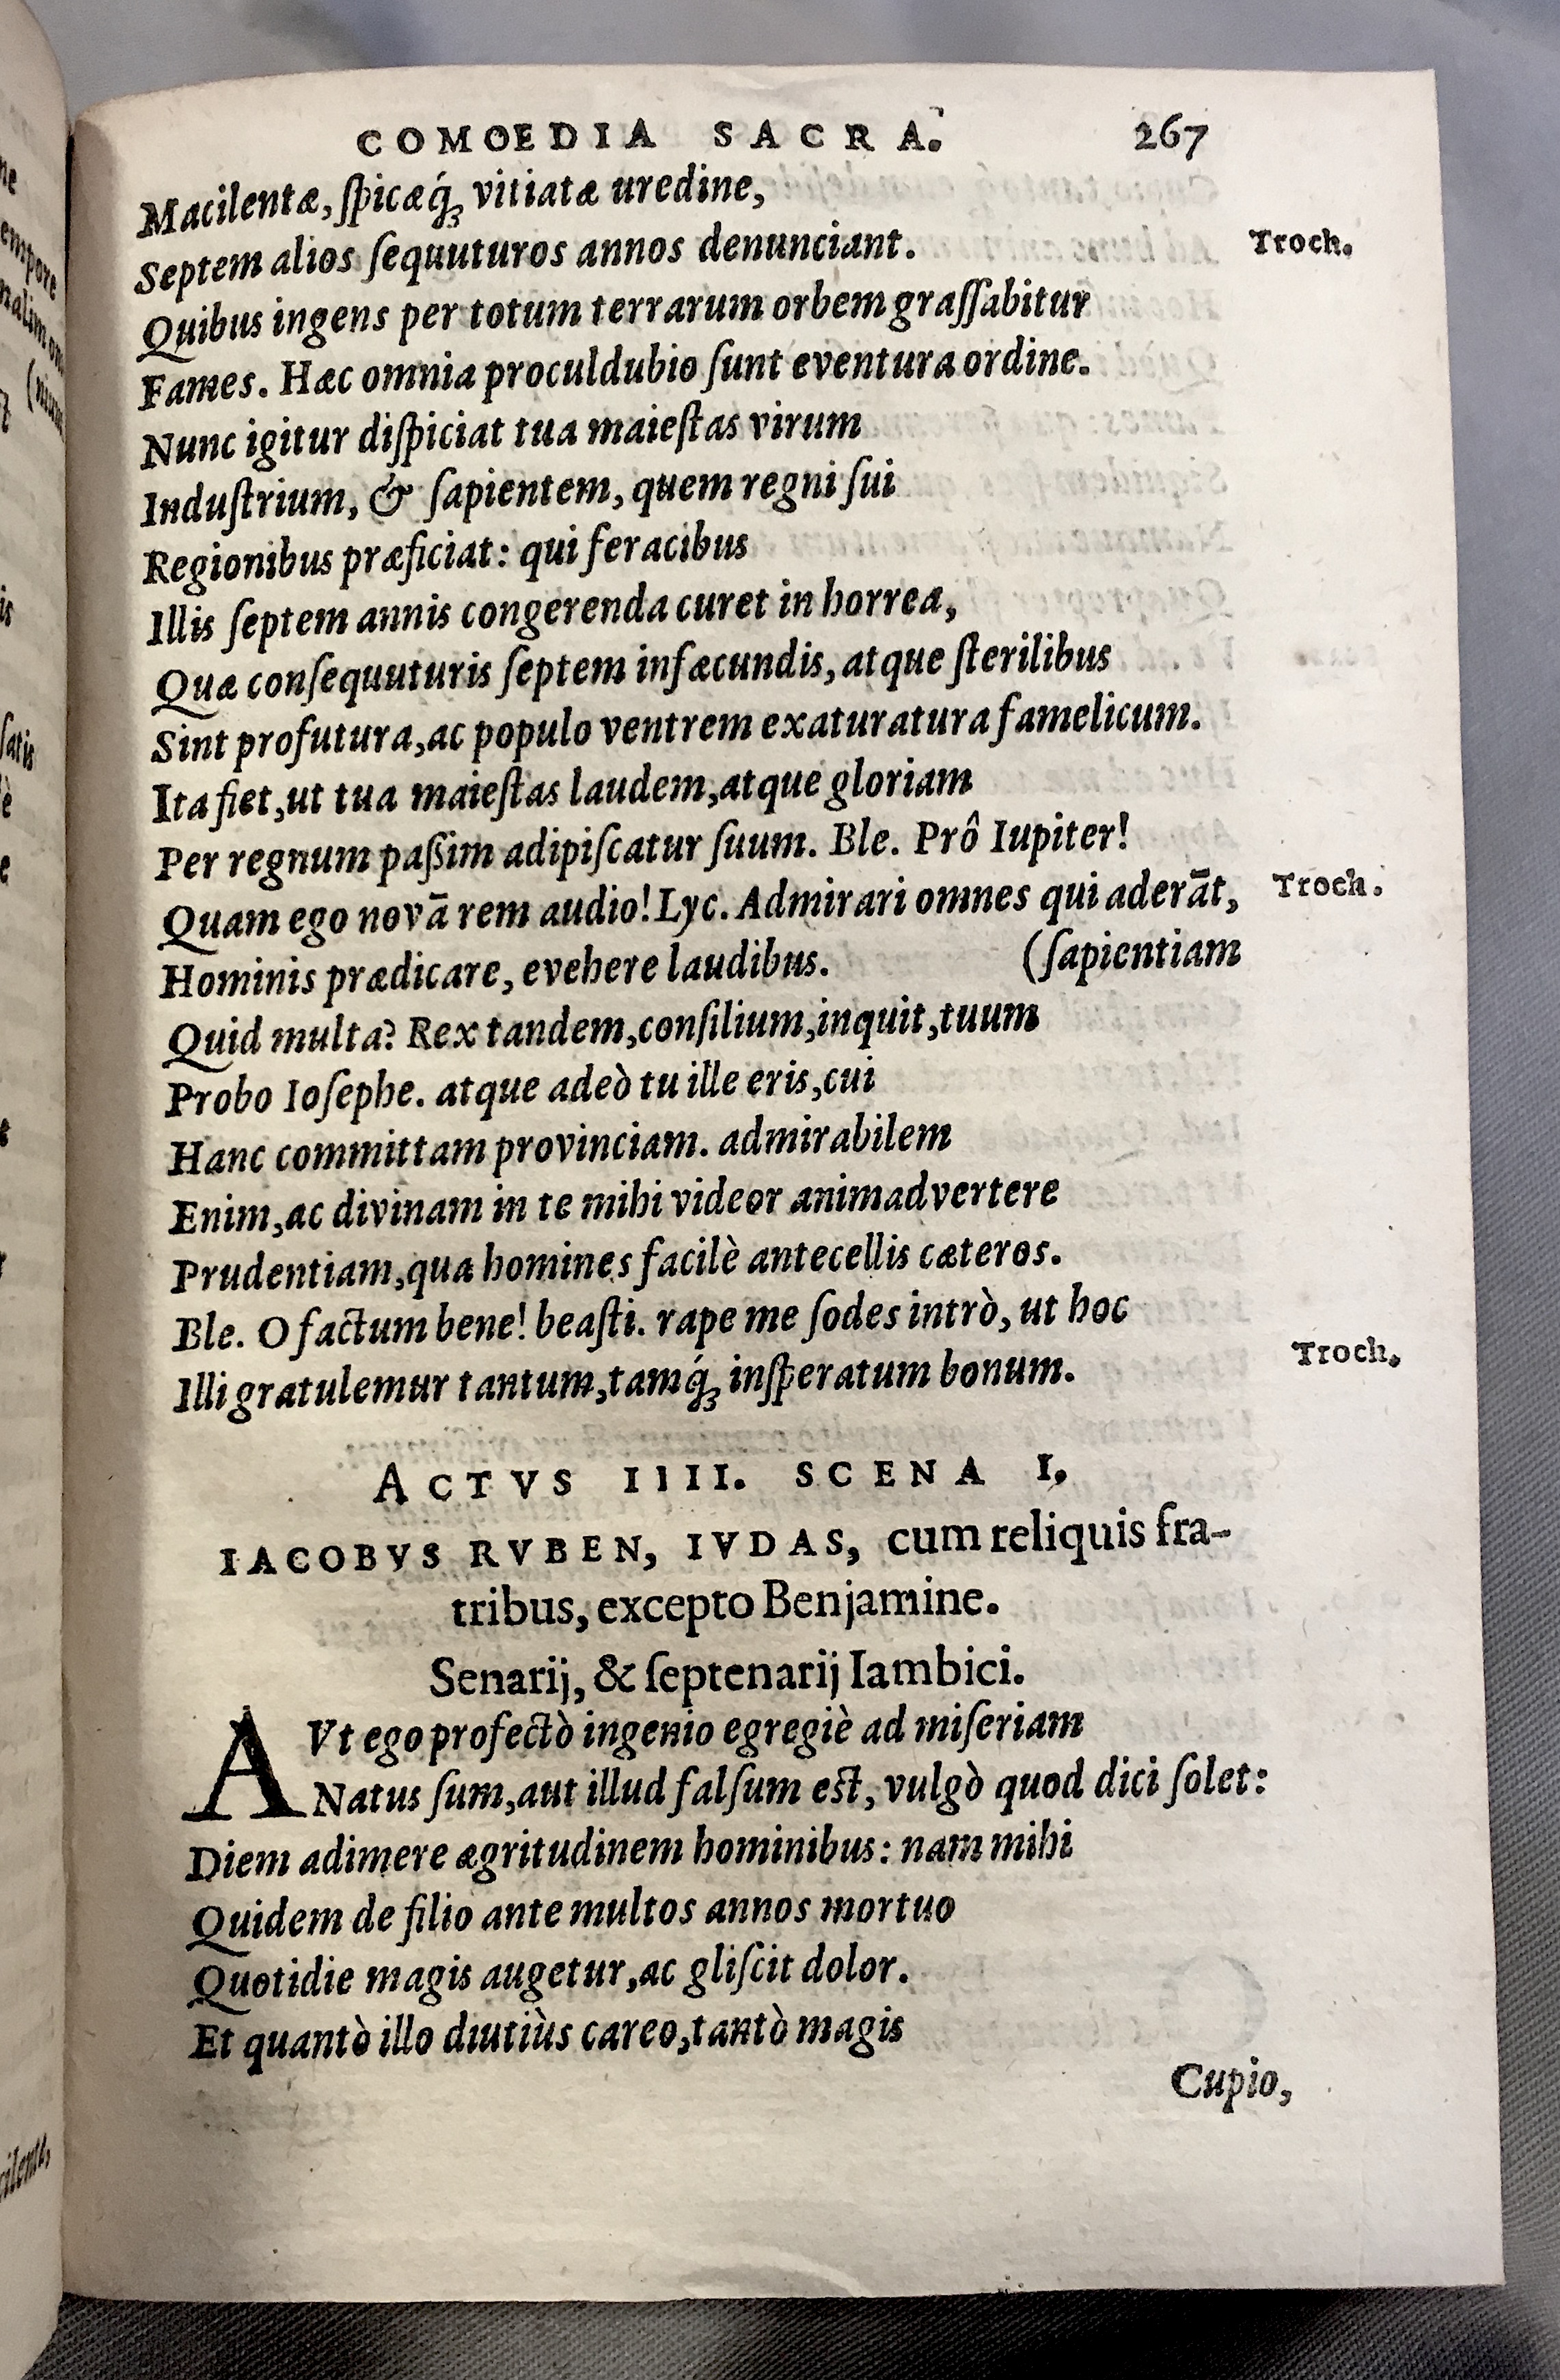 COMOEDIA SACRA. 267
Macilentæ, ſpicæq́ꝫ vitiatæ uredine,
Septem alios ſequuturos annos denunciant. Troch.
Quibus ingens per totum terrarum orbem graſſabitur
Fames. Hæc omnia proculdubio ſunt eventura ordine.
Nunc igitur diſpiciat tua maieſtas virum
Induſtrium, & ſapientem, quem regni ſui
Regionibus præficiat: qui feracibus
Illis ſeptem annis congerenda curet in horrea,
Quæ conſequuturis ſeptem infæcundis, atque ſterilibus
Sint profutura, ac populo ventrem exaturatura famelicum.
Ita fiet, ut tua maieſtas laudem, atque gloriam
Per regnum paßim adipiſcatur ſuum. Ble. Prô Iupiter!
Quam ego novā rem audio! Lyc. Admirari omnes qui aderāt, Troch.
Hominis prædicare, evehere laudibus. (ſapientiam
Quid multa? Rex tandem, conſilium, inquit, tuum
Probo Ioſephe. atque adeò tu ille eris, cui
Hanc committam provinciam. admirabilem
Enim, ac divinam in te mihi videor animadvertere
Prudentiam, qua homines facilè antecellis cæteros.
Ble. O factum bene! beaſti. rape me ſodes intrò, ut hoc
Illi gratulemur tantum, tamq́ꝫ inſperatum bonum. Troch.
ACTVS IIII. SCENA I.
IACOBVS RVBEN, IVDAS, cum reliquis fra-
tribus, excepto Benjamine.
Senarij, & ſeptenarij Iambici.
AVt ego profectò ingenio egregiè ad miſeriam
Natus ſum, aut illud falſum eſt, vulgò quod dici ſolet:
Diem adimere ægritudinem hominibus: nam mihi
Quidem de filio ante multos annos mortuo
Quotidie magis augetur, ac gliſcit dolor.
Et quantò illo diutiùs careo, tantò magis
Cupio,